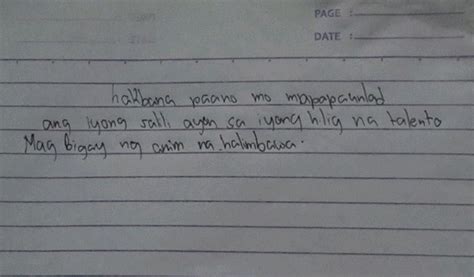 PAGE :
DATE :
hakbang paano mo mapapaunlad
ang iyong salli ayon sa iyong hilig na talento
Mag bigay ng anim na halimbawa.